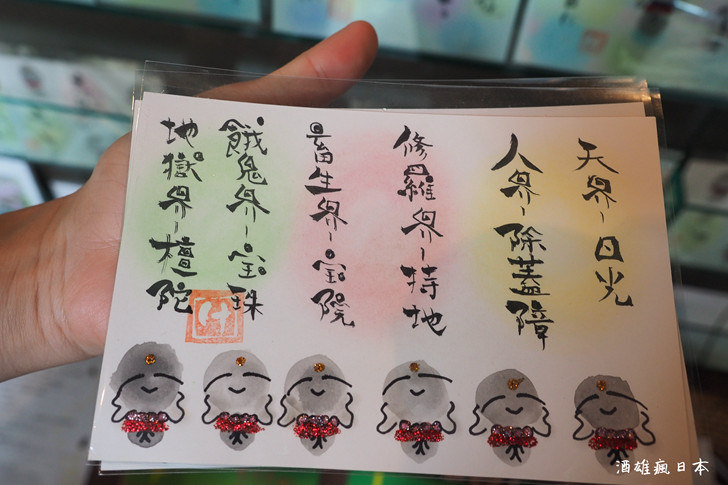 天界−日光
人界−除蓋障
修羅界−持地
畜生界−宝院
餓鬼界−宝珠
地獄界−檀陀
酒雄瘋日本